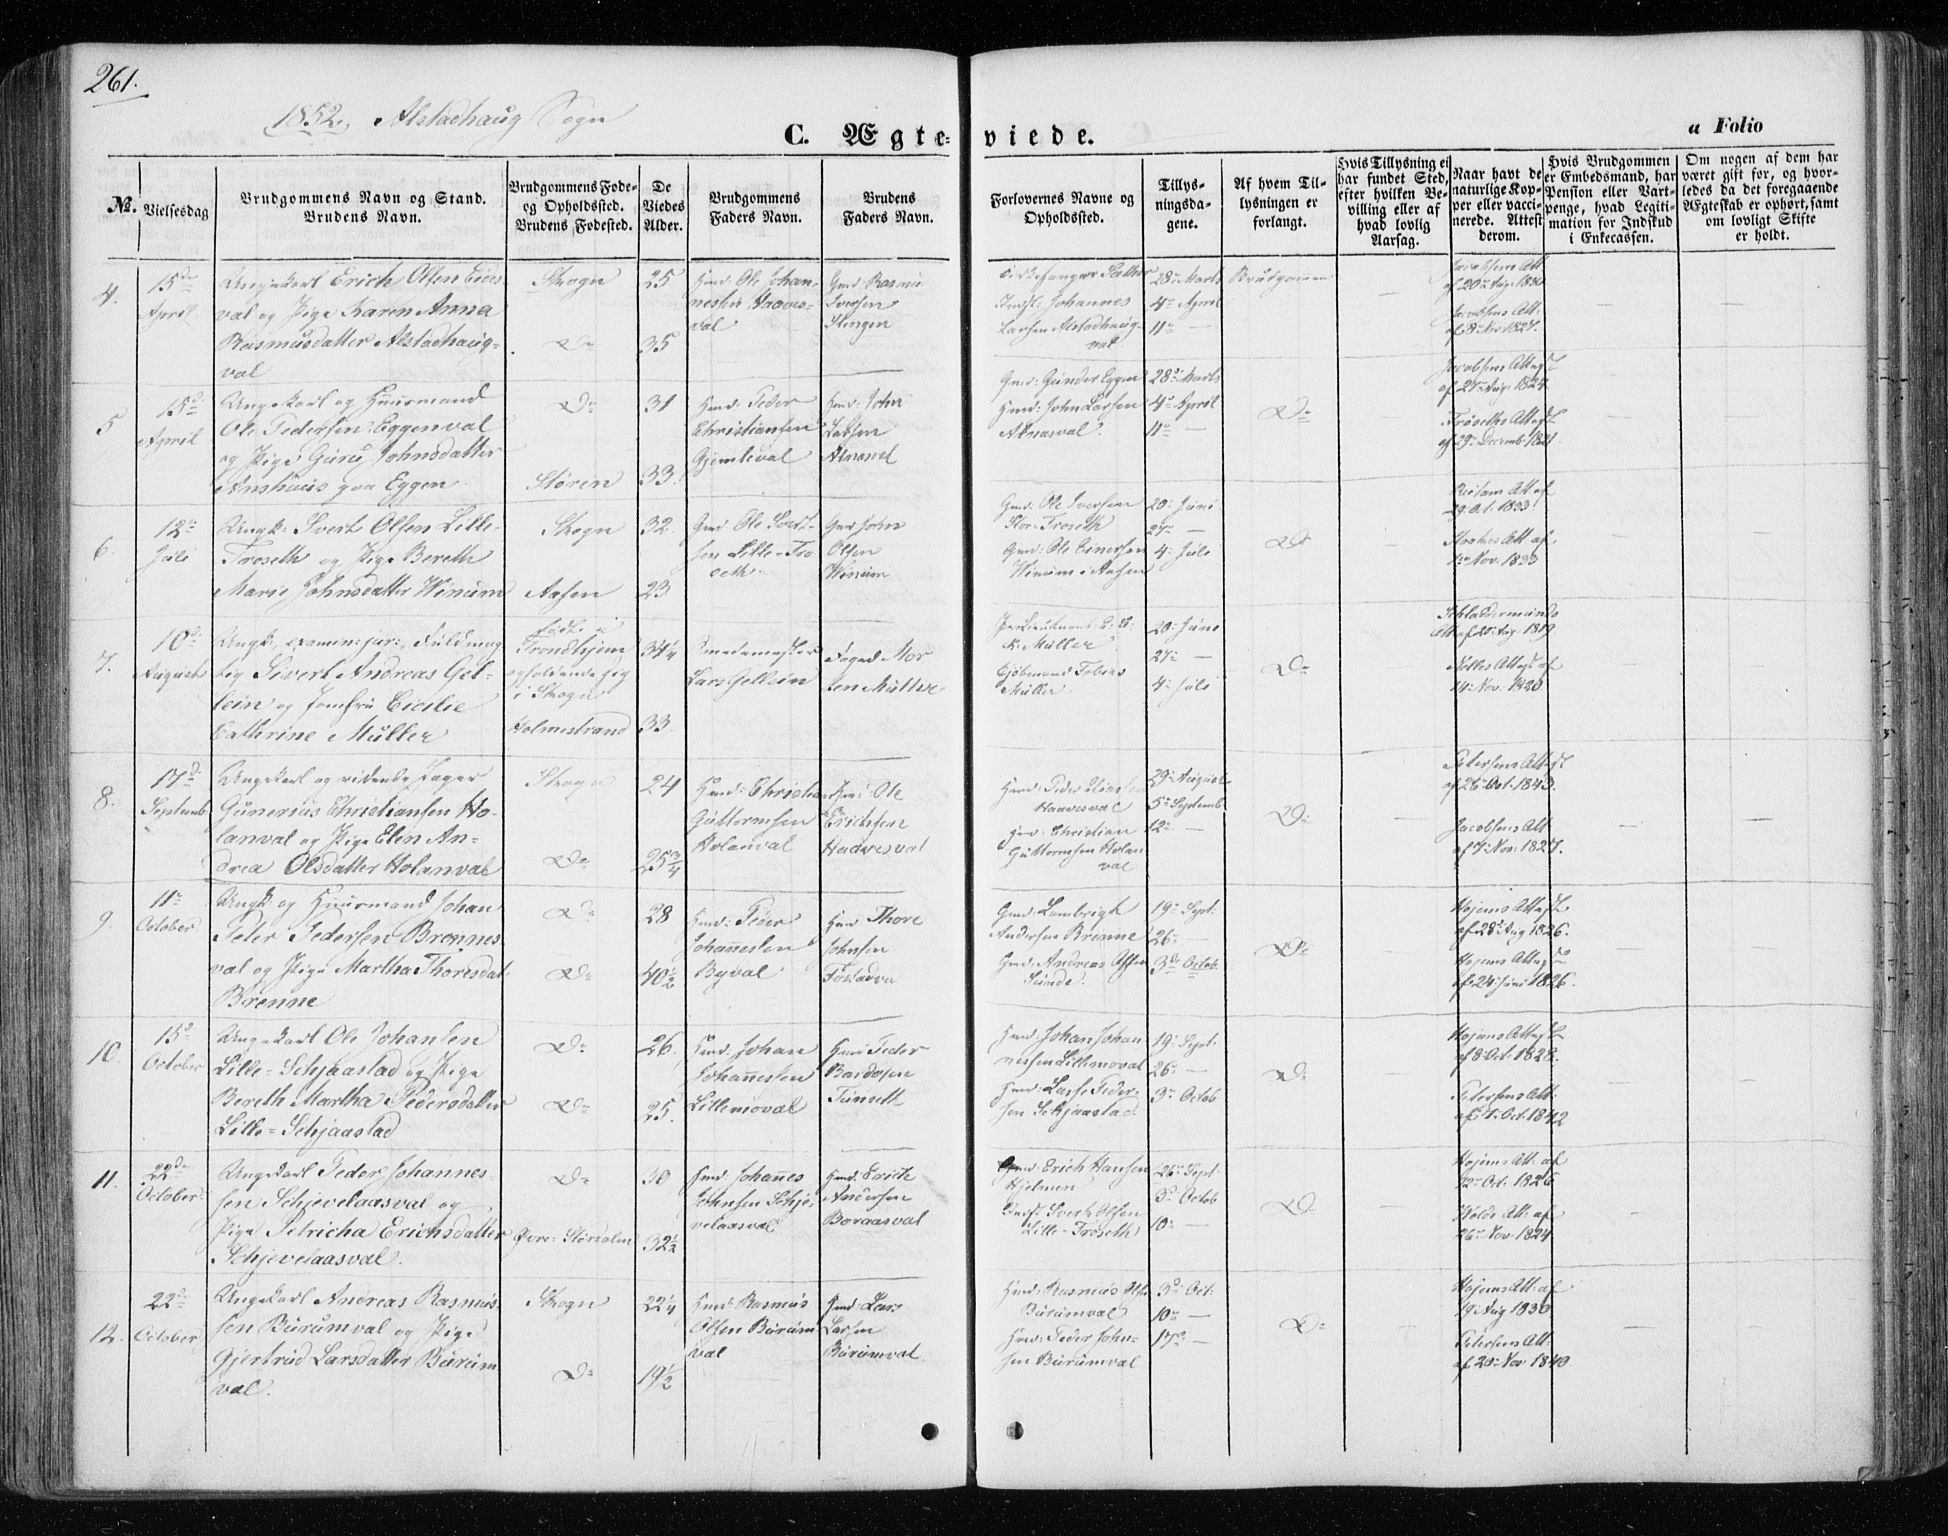 261.
1852. Alstadhaug Sogn
C. Ægte=
viede.
a Folio
No.
Vielsesdag
Brudgommens Navn og Stand.
Brudens Navn.
Brudgommens Føde-
og Opholdssted.
Brudens Fødested.
De
Viedes
Alder.
Brudgommens
Faders Navn.
Brudens
Faders Navn.
Forlovernes Navne og
Opholdssted.
Tillys-
ningsda-
gene.
Af hvem Til-
lysningen er
forlangt.
Hvis Tillysning ei
har fundet Sted,
efter hvilken Be-
villing eller af
hvad lovlig
Aarsag.
Naar havt de
naturlige Kop-
per eller vacci-
nerede. Attest
derom.
Hvis Brudgommen
er Embedsmand, har
Pension eller Vart-
penge, hvad Legiti-
mation for Indskud
i Enkecassen.
Om nogen af dem har
været gift for, og hvor-
ledes da det foregaaende
Ægteskab er ophørt, samt
om lovligt Skifte
er holdt.
4.
15de
April
Ungekarl Erich Olsen
val og Pige Karen Anna
Rasmusdatter Alstadhaug-
val
Skogn
Do
25
35
Hmd: Ole Johan-
nessen Haaves-
val
Gmd: Rasmus
Iversen
Slingen
Kirkesanger Sætter
Indst: Johannes
Larsen Alstadhaug-
val
28 Marts
4de April
11te —
Brudgommen
—
Jacobsens Att:
af 20de Aug: 1830
Jacobsens Att:
af 8de Nov 1827.
—
—
5
15de
April
Ungekarl og Huusmand
Ole Pedersen Eggenval
og Pige Guru Johnsdatter
Anshuus paa Eggen
Do
Størin
31
33.
Hmd: Peder
Christiansen
Gjemleval
Hmd: John
Larsen
Gmd: Gunder Eggen
Hmd: John Larsen
28de Marts
4de April
11te —
Do
—
Jacobsens Attest
af 25de Aug: 1824
Frøseths Attest
af 29de Decemb: 1821
—
—
6.
12te
Juli
Ungk: Sivert Olsen Lille-
Troseth og Pige Bereth
Marie Johnsdatter Winum
Skogn
Aasen
32.
23
Gmd: Ole Sivert-
sen Lille-Tro
seth.
Gmd: John
Olsen
Winum
Gmd: Ole Iversen
Stor-Troseth
Gmd: Ole Einersen
Winum i Aasen
20: Juni
27de —
4: Juli
Do
—
Att: af
29: Oct. 1833
Att af
1te Nov. 1833
—
—
7.
10de
August
Ungk: examin: jur: Fuldmæg-
tig Sivert Andreas Gel-
lein og Jomfru Cicilie
Cathrine Müller
født i
Trondhjem
opholdende sig
i Skogn
Holmestrand
34¼
33.
Smedemester
Lars Gellein
Foged Mor
ten Müller
Premlieutnant
K. Müller
Kjøbmand Tobias
Müller.
20: Juni
27: —
4: Juli
Do
—
Att af 20: Aug: 1819
Noldes Attest af
14: Nov: 1820
—
—
8.
17de
Septemb:
Ungekarl og ridende Jæger
Gunerius Christiansen Ho-
lanval og Pige Elen An-
drea Olsdatter Holanval
Skogn
Do
24
25¾
Hmd: Christian
Guttormsen
Holanval
Hmd: Ole
Erichsen
Haavesval
Hmd: Peder
Haavesval
Hmd: Christian
Guttormsen Holan
val
29: August
5te Septemb
12te —
Do
—
Petersens Attest
af 26de Oct: 1843.
Jacobsens Att
af 7: Nov: 1827.
—
—
9.
11te
October
Ungk: og Huusmand Johan
Peter Pedersen Brennes-
val og Pige Martha Thoresdat
Brenne
Do
Do
28
40½
Hmd: Peder
Johannessen
Byval
Hmd Thore
Johnsen
Gmd: Lambrigt
Andersen Brenne
Gmd: Andreas Olsen
Sunde.
19de Sept:
26: —
3de Octob.
Do
—
Hojems Attest
af 28de Aug 1826.
Hojems Attest
af 24: Juni 1826.
—
—
10.
15de
October
Ungekarl Ole Johansen
Lille-Schjaastad og Pige
Bereth Martha Pedersdatter
Lille-Schjaastad
Do
Do
26.
25.
Hmd: Johan
Johannessen
Lillemoval
Hmd Peder
Bardosen
Hmd: Johan Johan
nessen Lillemoval
Hmd: Lasse Peder-
sen Schjaastad.
19: Sept:
26: —
3de Octob
Do
—
Hojems Attest
af 8: Oct: 1828.
Petersens Att:
Oct. 1842
—
—
11.
22de
October
Ungekarl Peder Johannes-
sen Schjevelaasval og
Pige Petricha Erichsdatter
Schjevelaasval.
Do
Øvre-Størdalen
30
32½
Hmd: Johannes
Johnsen Schje-
velaasval
Hmd: Erich
Andersen
Boraasval
Gmd: Erich Hansen
Hjelmen
Indst: Sivert Olsen
Lille-Troseth
26de Sept:
3de Octob
10: —
Do
—
Hojems Att: af
12te Oct: 1826
Nolds Att: af
26de Nov: 1824
—
—
12.
22de
October
Ungekarl Andreas Rasmus-
sen Burumval og Pige
Gjertrud Larsdatter Burum
val.
Skogn
Do
22¼
19½
Hmd: Rasmus
Olsen Burum
val
Hmd: Lars
Larsen
Burumval
Hmd: Rasmus Olsen
Burumval
Hmd: Peder John-
sen Burumval
3de Oct:
10de —
17de —
Do
—
Hojems Att: af
19: Aug 1830
Petersens Att:
af 20de Nov: 1840
—
—